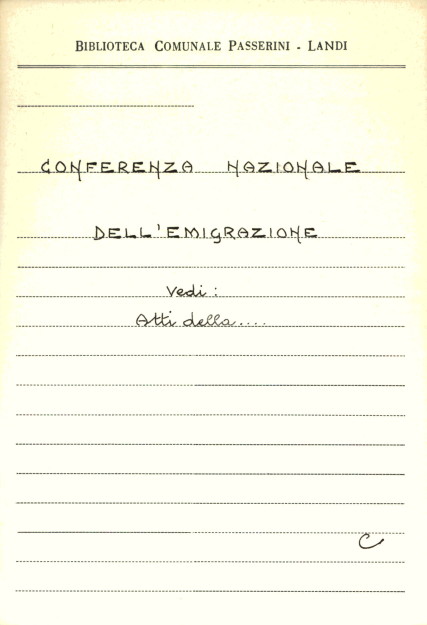 BIBLIOTECA COMUNALE PASSERINI - LANDI
CONFERENZA NAZIONALE
DELL'EMIGRAZIONE
Vedi:
Atti della....
C